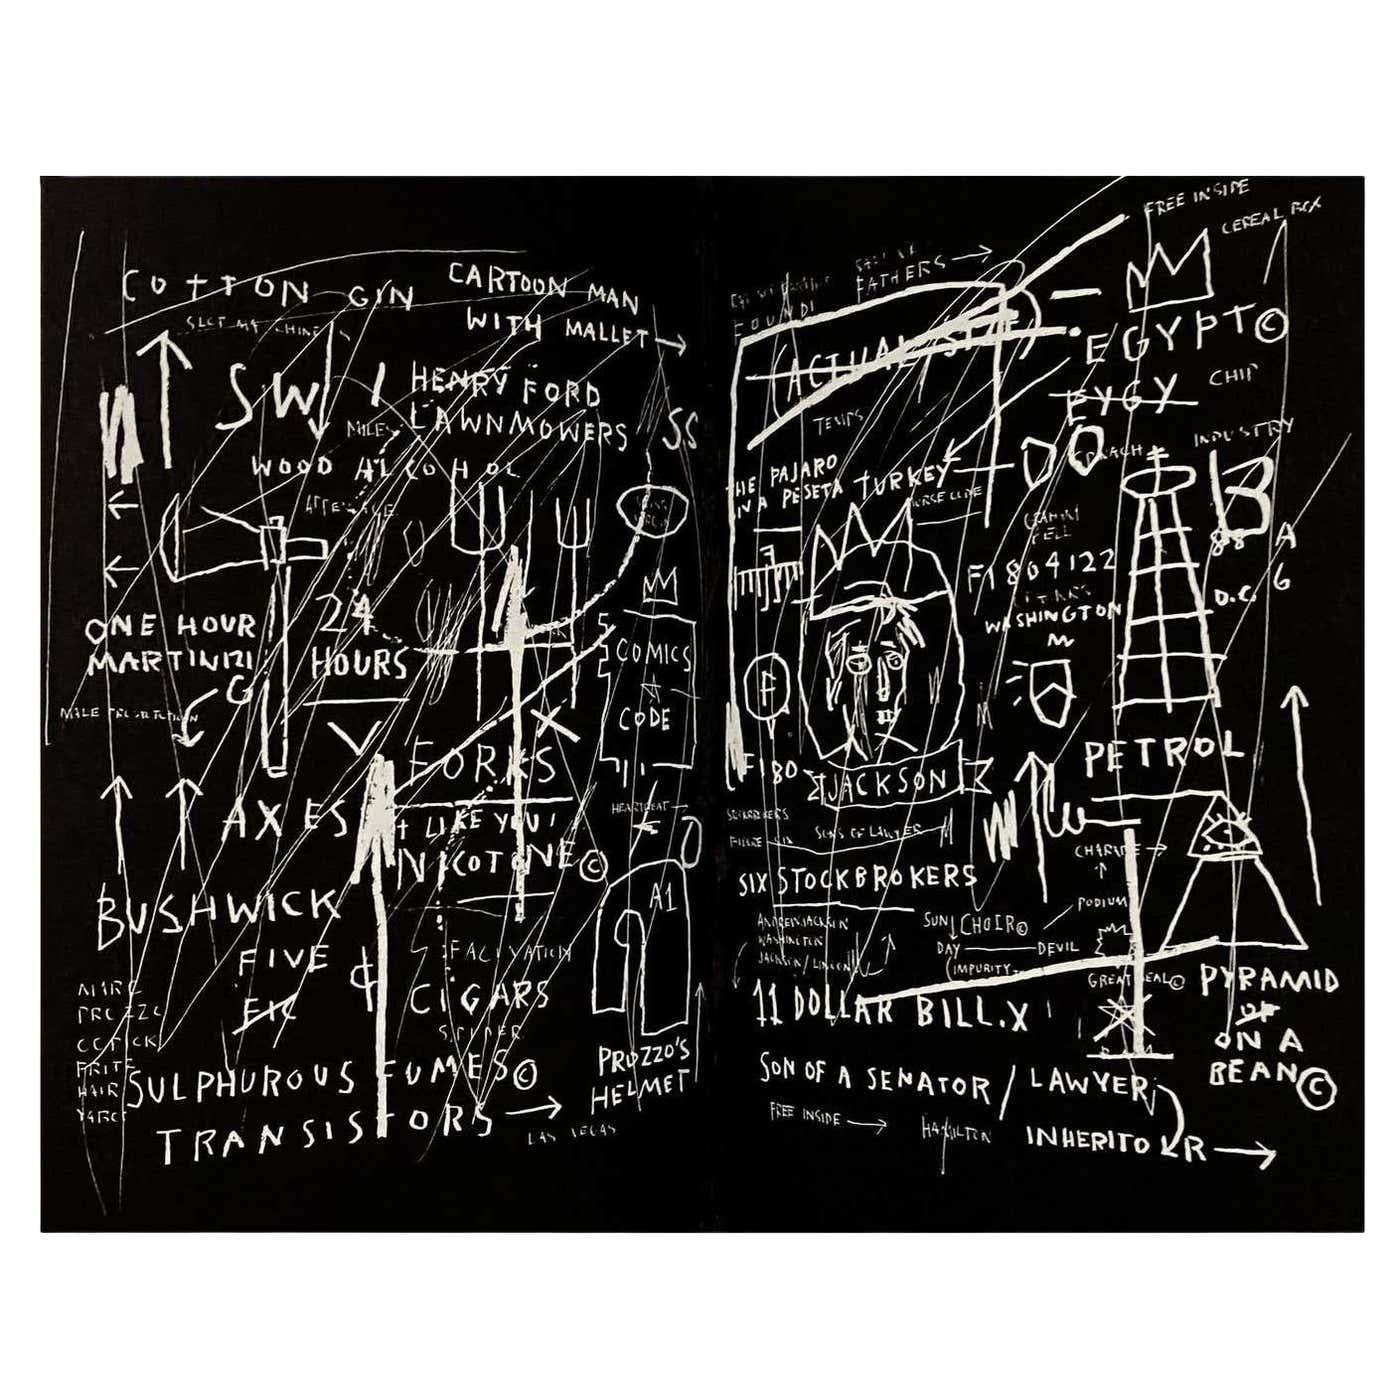 COTTON GIN
CARTOON MAN
WITH MALLET
SW
HENRY FORD
LAWNMOWERS
SS
MILES
WOOD ALCOHOL
24
HOURS
ONE HOUR
MARTINIZI
G
COMICS
CODE
FORKS
AXES
I LIKE YOU!
NICOTINE©
HEARTBEAT
A1
BUSHWICK
FIVE
CIGARS
SPIDER
SULPHUROUS FUMES©
TRANSISTORS
LAS VEGAS
PROZZO'S
HELMET
FREE INSIDE
CEREAL BOX
FATHERS
(ACTUAL SIZE)
EGYPT©
EYGY
CHIP
INDUSTRY
THE PAJARO
IN A PESETA
TURKEY
MORSE CODE
F1804122
WASHINGTON
M
B
88
A
6
D.C.
F
F180
JACKSON
PETROL
STOCKBROKERS
SONS OF LAWYER
SIX STOCKBROKERS
CHARADE
PODIUM
ANDREW JACKSON
WASHINGTON
JACKSON/LINCOLN
SUN
CHOIR©
DAY
DEVIL
(IMPURITY
GREAT SEAL©
11 DOLLAR BILL.X
PYRAMID
OF
ON A
BEAN©
SON OF A SENATOR / LAWYER
FREE INSIDE
HAMILTON
INHERITOR